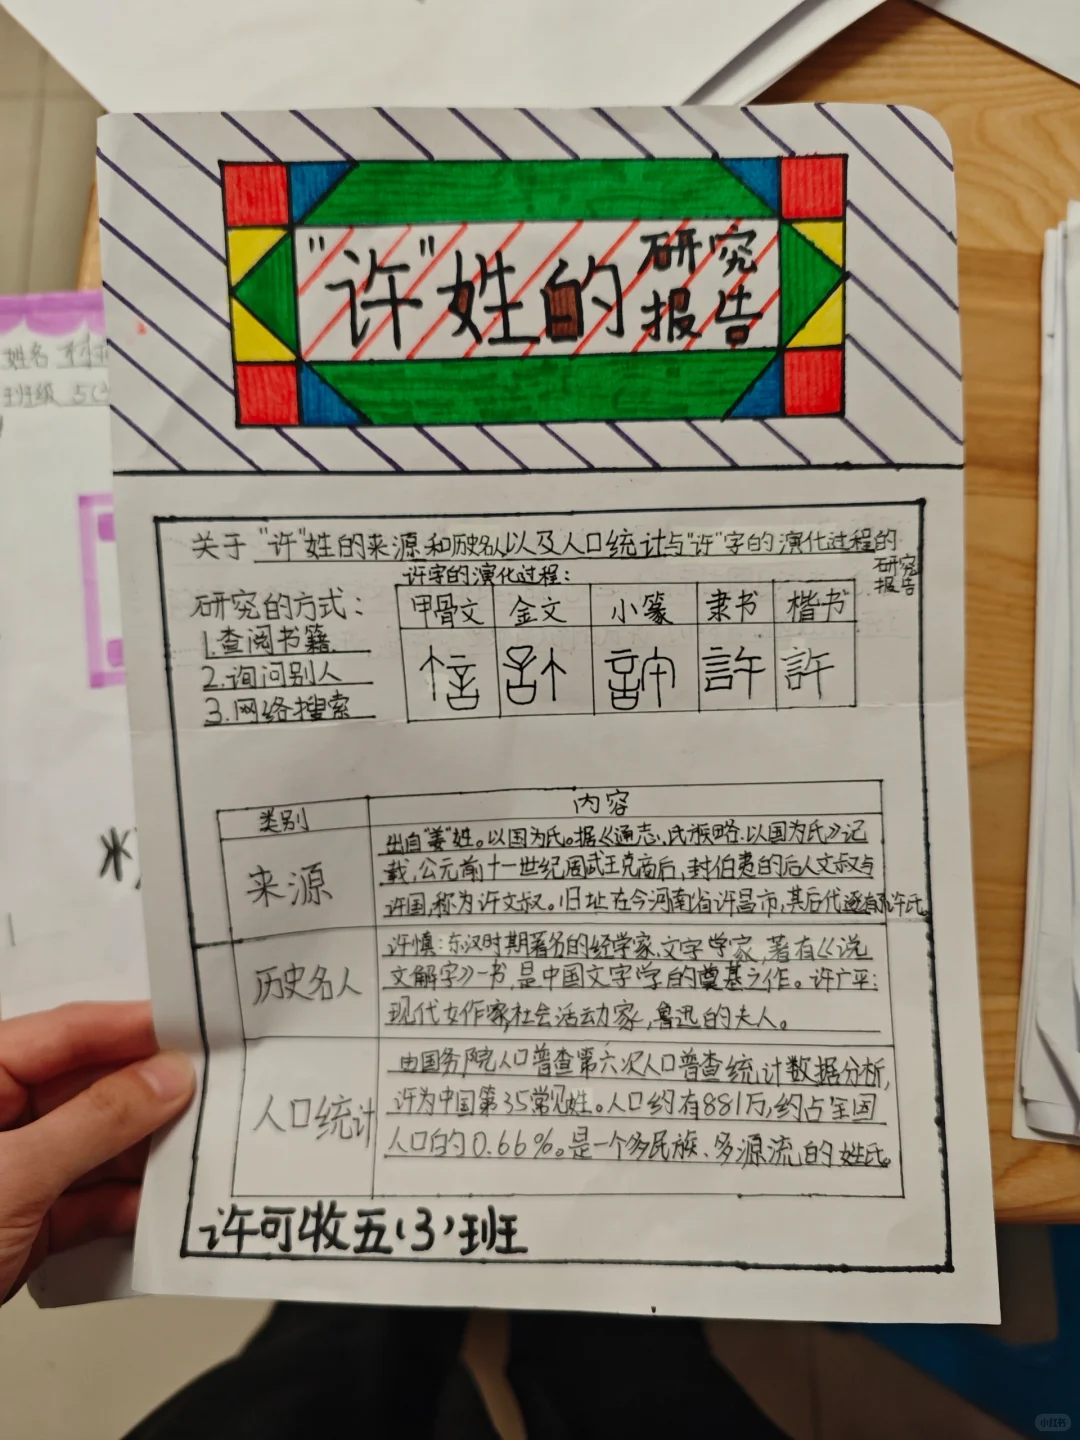 "许"姓的研究
报告
关于"许"姓的来源和历史名人以及人口统计与"许"字的演化过程的
研究
报告
许字的演化过程:
研究的方式:
1.查阅书籍
2.询问别人
3.网络搜索
甲骨文 金文 小篆 隶书 楷书
許 許
类别 内容
来源
出自"姜"姓。以国为氏。据《通志,氏族略.以国为氏》记
载,公元前十一世纪周武王克商后,封伯夷的后人文叔与
许国,称为许文叔。旧址在今河南省许昌市,其后代逐有许氏。
历史名人
许慎:东汉时期著名的经学家、文字学家,著有《说
文解字》一书,是中国文字学的奠基之作。许广平:
现代女作家,社会活动家,鲁迅的夫人。
人口统计
由国务院人口普查第六次人口普查统计数据分析,
许为中国第35常见姓。人口约有881万,约占全国
人口的0.66%。是一个多民族、多源流的姓氏。
许可牧五(3)班
姓名
班级 5(3
小红书